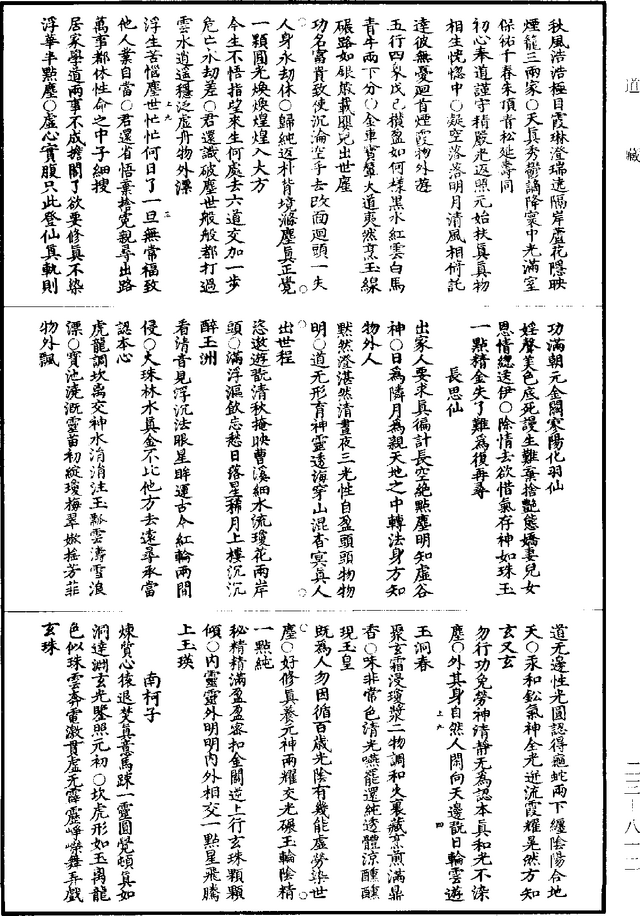 道藏
秋風浩浩極目霞琳澄瑞遠隔岸蘆花隱映
煙龍三兩家○天真秀鬱謫降寰中光滿室
保祐千春朱頂青松延壽同
初心奉道謹守精嚴光返照元始扶真真物
相生恍惚中○凝空落落明月清風相倚託
達彼無憂迴首煙霞物外遊
五行四象戊己攢盈如何樣黑水紅雲白馬
青牛兩下分○金車寶輦大道爽然烹玉線
碾路如銀嚴載嬰兒出世塵
功名富貴致使沉淪空手去改面迴頭一失
人身永劫休○歸純返朴背境滌塵真正覺
一顆圓光煥煥煌煌入大方
今生不悟指望來生何處去六道交加一步
危亡永劫差○君還識破塵世般般都打過
雲水逍遥穩泛虛舟物外漂
浮生苦惱塵世忙忙何日了一旦無常福致
他人業自當○君還省悟棄捨寃親尋出路
萬事都休性命之中子細搜
居家學道兩事不成擔閣了欲要修真不染
浮華半點塵○虛心實腹只此登仙真軌則
功滿朝元金闕寥陽化羽仙
婬聲美色底死謾生難棄捨艷態嬌妻兒女
恩情總送伊○除情去欲惜氣存神如珠玉
一點精金失了難為復再尋
長思仙
出家人要求真徧計長空絶點塵明知虛谷
神○日為隣月為親天地之中轉法身方知
物外人
黙然澄湛然清晝夜三光性自盈頭頭物物
明○道无形育神靈透海穿山混杳冥真人
出世程
恣遨遊翫清秋掩映曹溪細水流瓊花兩岸
頭○滿浮漚飲忘愁日落星稀月上樓沉沉
醉玉洲
看清音見浮沉法眼星眸運古今紅輪兩間
侵○大珠林水真金不比他方去遠尋承當
認本心
虎龍調坎离交神水涓涓注玉瓢雲濤雪浪
漂○寶池澆溉靈苗初綻瓊梅翠嫩搖芳菲
物外飄
道无邊性光圓認得龜蛇兩下纏陰陽合地
天○汞和鈆氣神全光迸流霞耀晃然方知
玄又玄
勿行功免勞神清靜无為認本真和光不染
塵○外其身自然人閙向天邊翫日輪雲遊
玉洞春
聚玄霜浸瓊漿二物調和火裏藏烹煎滿鼎
香○味非常色清光嚥罷還純透體涼醺醺
現玉皇
既為人勿因循百歲光陰有幾能虛勞染世
塵○好修真養元神兩耀交光碾玉輪陰精
一點純
秘精精滿盈盈密扣金關逆上行玄珠顆顆
傾○内靈靈外明明内外相交一點星飛騰
上玉瑛
南柯子
煉質心猿退焚真意馬踈一靈圓覺頓真如
洞達淵玄光鑒照元初○坎虎形如玉离龍
色似珠雲奔電激貫虛无霹靂崢嶸舞弄戲
玄珠
上九 二
上九 四
二三—八一二